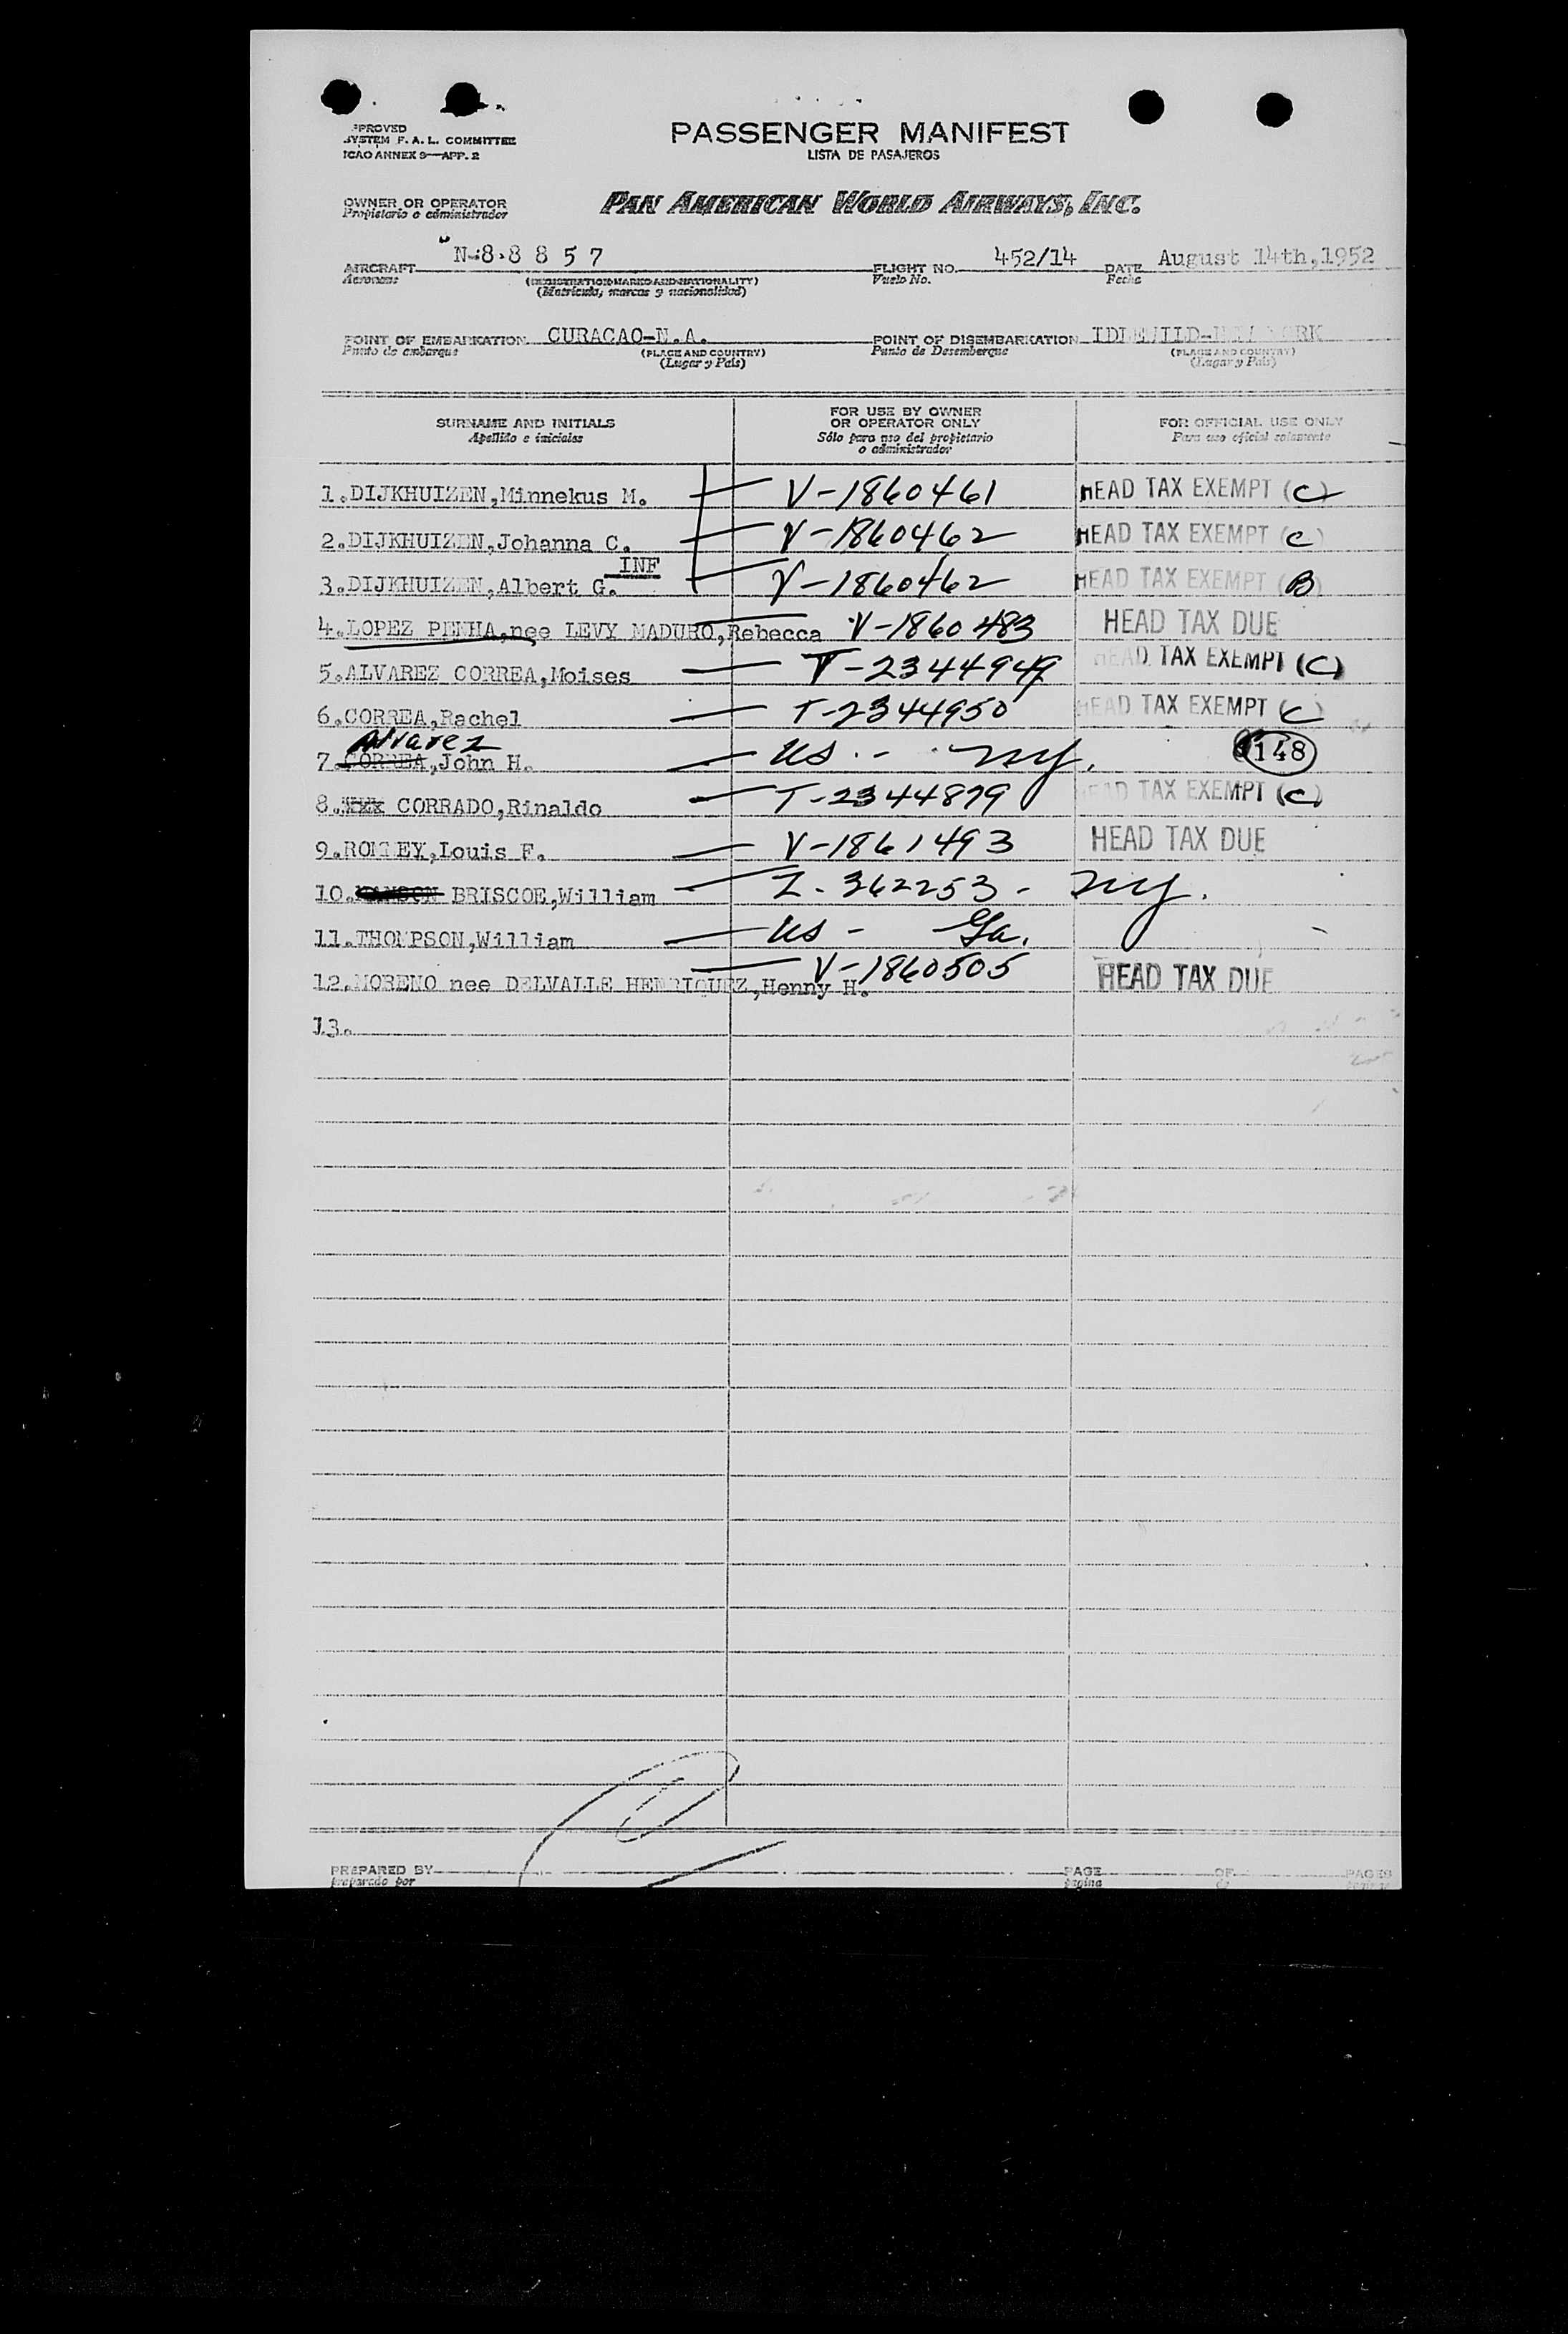 APPROVED
SYSTEM F. A. L. COMMITTEE
ICAO ANNEX 9—APP. 2
PASSENGER MANIFEST
LISTA DE PASAJEROS
OWNER OR OPERATOR
Propietario o administrador
PAN AMERICAN WORLD AIRWAYS, INC.
AIRCRAFT N-8 8 8 5 7 FLIGHT NO. 452/14 DATE August 14th,1952
Aeronave Vuelo No. Fecha
(REGISTRATION MARKS AND NATIONALITY)
(Matricula, marcas y nacionalidad)
POINT OF EMBARKATION CURACAO-N.A. POINT OF DISEMBARKATION IDLEWILD-NEW YORK
Punto de embarque (PLACE AND COUNTRY) Punto de Desembarque (PLACE AND COUNTRY)
(Lugar y País) (Lugar y País)
SURNAME AND INITIALS
Apellido e iniciales
FOR USE BY OWNER
OR OPERATOR ONLY
Sólo para uso del propietario
o administrador
FOR OFFICIAL USE ONLY
Para uso oficial solamente
1.DIJKHUIZEN,Minnekus M. V-1860461 HEAD TAX EXEMPT (C)
2.DIJKHUIZEN,Johanna C. V-1860462 HEAD TAX EXEMPT (C)
INF
3.DIJKHUIZEN,Albert G. V-1860462 HEAD TAX EXEMPT (B)
4.LOPEZ PENHA,nee LEVY MADURO,Rebecca V-1860483 HEAD TAX DUE
5.ALVAREZ CORREA,Moises T-2344949 HEAD TAX EXEMPT (C)
6.CORREA,Rachel T-2344950 HEAD TAX EXEMPT (C)
Alvarez
7.CORREA,John H. US - NY. 148
8.xxx CORRADO,Rinaldo T-2344879 HEAD TAX EXEMPT (C)
9.ROMNEY,Louis F. V-1861493 HEAD TAX DUE
10. BRISCOE,William I-362253 - NY.
11.THOMPSON,William US - Ga.
12.MORENO nee DELVALLE HENRIQUEZ,Henny H. V-1860505 HEAD TAX DUE
13.
PREPARED BY PAGE OF PAGES
preparado por pagina de paginas